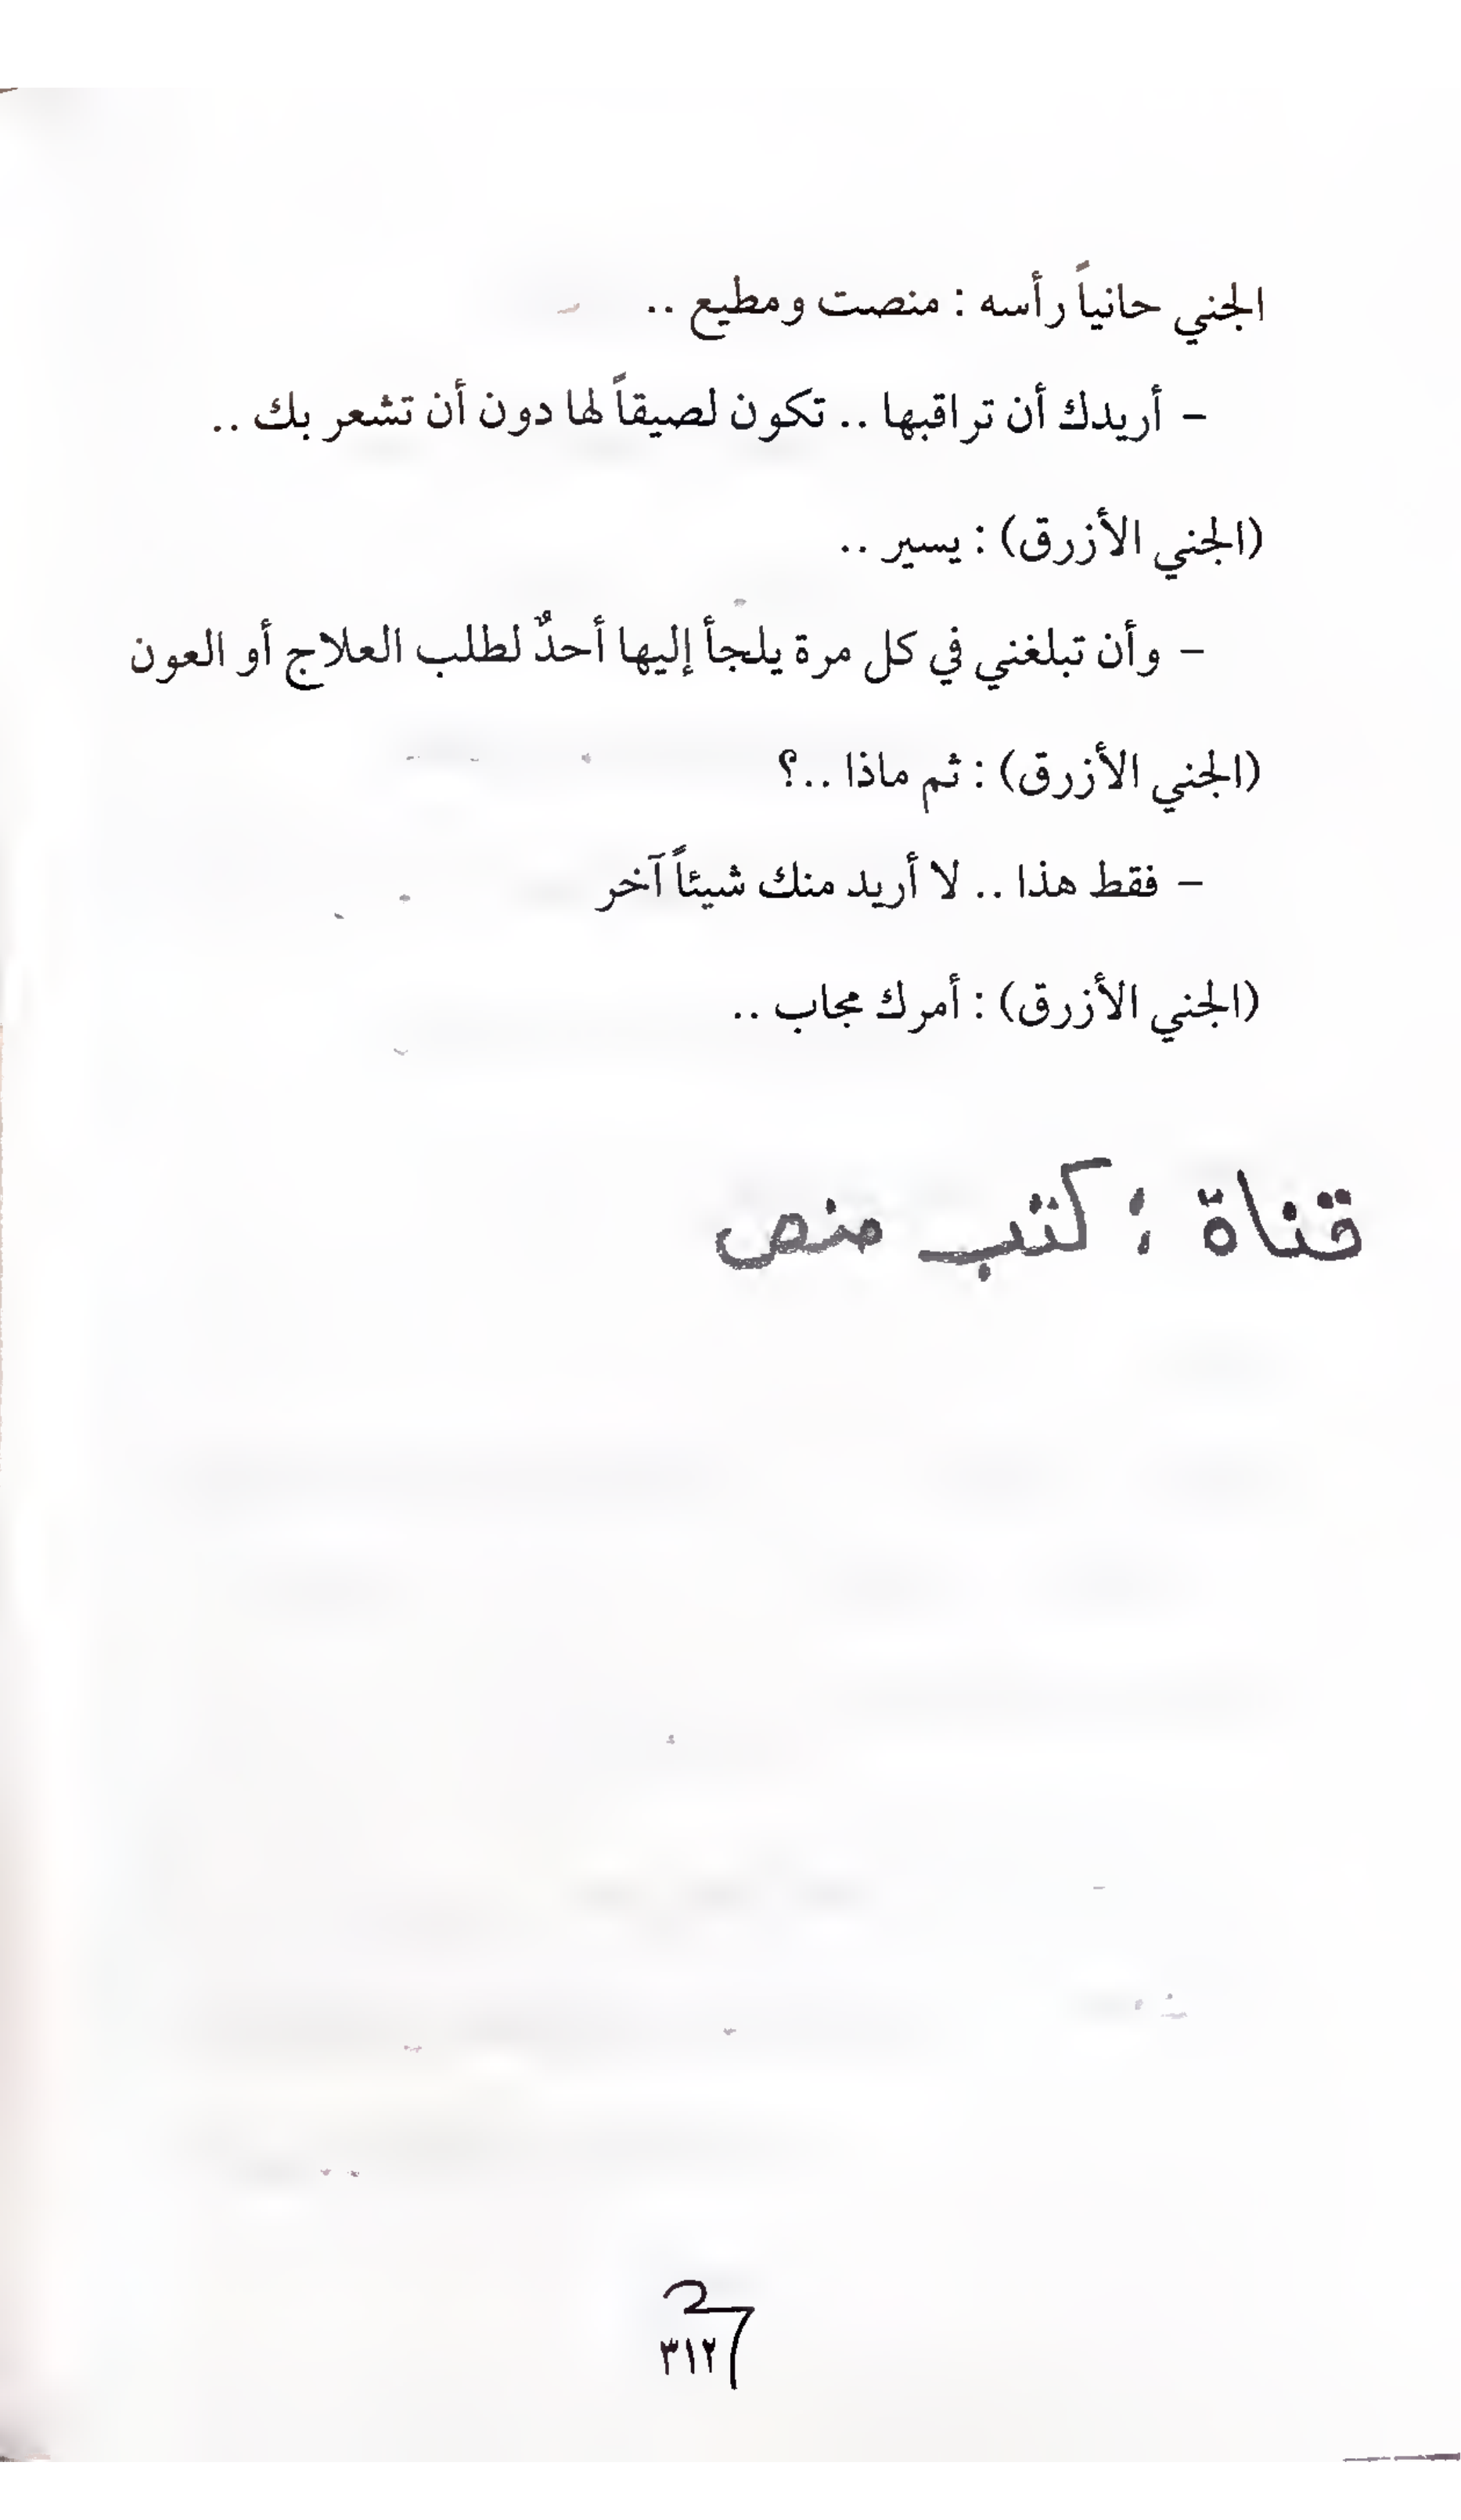 الجني حانياً رأسه : منصت ومطيع ..
– أريدك أن تراقبها .. تكون لصيقاً لها دون أن تشعر بك ..
(الجني الأزرق) : يسير ..
– وأن تبلغني في كل مرة يلجأ إليها أحدٌ لطلب العلاج أو العون
(الجني الأزرق) : ثم ماذا ..؟
– فقط هذا .. لا أريد منك شيئاً آخر
(الجني الأزرق) : أمرك مجاب ..
قناة : كتب منص
٣١٢